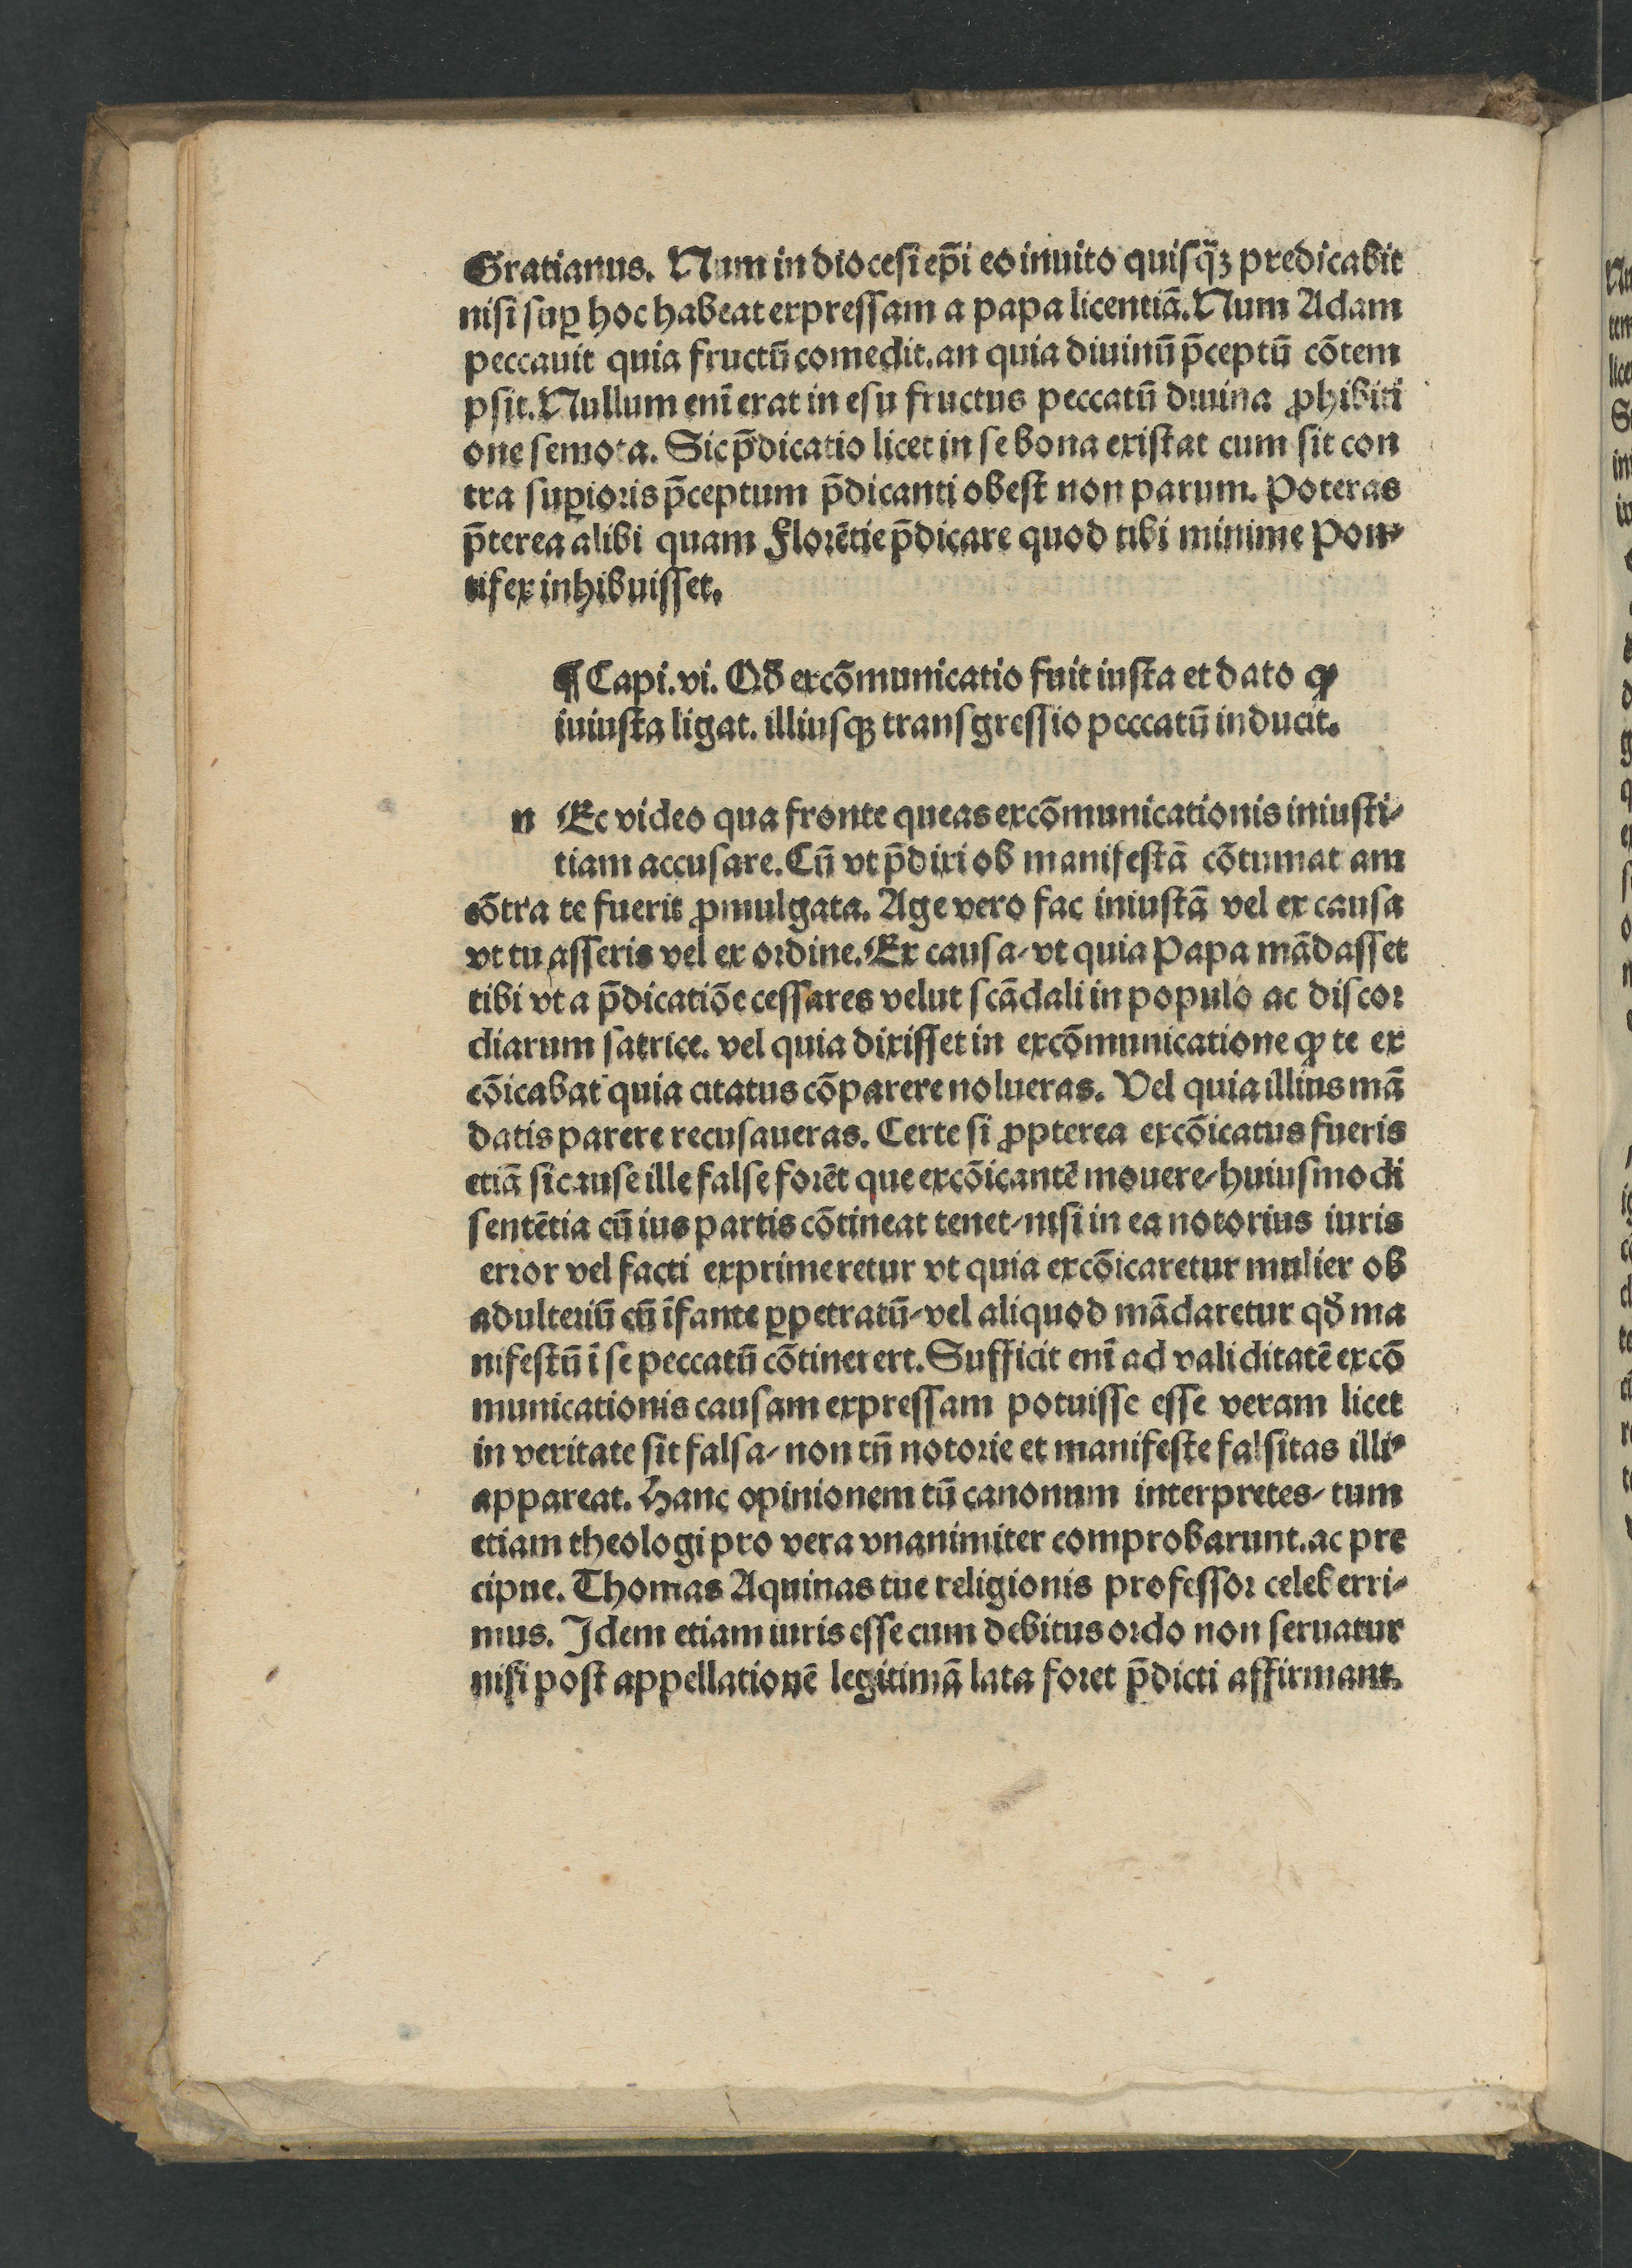 Gratianus. Num in diocesi ep̄i eo inuito quisq̄ꝫ predicabit
nisi suꝑ hoc habeat expressam a papa licentiā. Num Adam
peccauit quia fructū comedit. an quia diuinū p̄ceptū cōtem
psit. Nullum enī erat in esu fructus peccatū diuina ꝓhibiti
one semota. Sic p̄dicatio licet in se bona existat cum sit con
tra suꝑioris p̄ceptum p̄dicanti obest non parum. Poteras
p̄terea alibi quam Florētie p̄dicare quod tibi minime Pon⸗
tifex inhibuisset.
¶ Capi. vi. Qđ excōmunicatio fuit iusta et dato ꝙ
iuiusta ligat. illiusqꝫ transgressio peccatū inducit.
n Ec video qua fronte queas excōmunicationis iniusti⸗
tiam accusare. Cū vt p̄dixi ob manifestā cōtumat am
cōtra te fuerit ꝓmulgata. Age vero fac iniustā vel ex causa
vt tu asseris vel ex ordine. Ex causa/ vt quia Papa mādasset
tibi vt a p̄dicatiōe cessares velut scādali in populo ac discor
diarum satrice. vel quia dixisset in excōmunicatione ꝙ te ex
cōicabat quia citatus cōparere nolueras. Vel quia illius mā
datis parere recusaueras. Certe si ꝓpterea excōicatus fueris
etiā si cause ille false forēt que excōicantē mouere/ huiusmodi
sentētia cū ius partis cōtineat tenet/ nisi in ea notorius iuris
error vel facti exprimeretur vt quia excōicaretur mulier ob
adulteriū cū īfante ꝑpetratū/ vel aliquod mādaretur qđ ma
nifestū ī se peccatū cōtinerert. Sufficit enī ad validitatē excō
municationis causam expressam potuisse esse veram licet
in veritate sit falsa/ non tn̄ notorie et manifeste falsitas illiꝰ
appareat. Hanc opinionem tū canonum interpretes/ tum
etiam theologi pro vera vnanimiter comprobarunt. ac pre
cipue. Thomas Aquinas tue religionis professor celeberri⸗
mus. Idem etiam iuris esse cum debitus ordo non seruatur
nisi post appellationē legitimā lata foret p̄dicti affirmant.